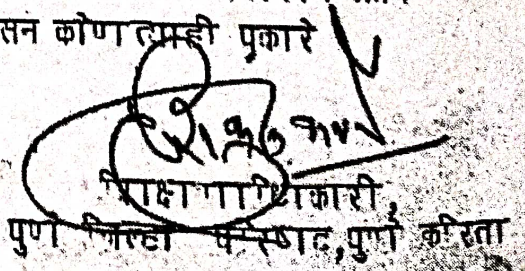 सन कोणत्याही प्रकारे
शिक्षणाधिकारी,
पुणे जिल्हा परिषाद, पुणे करिता